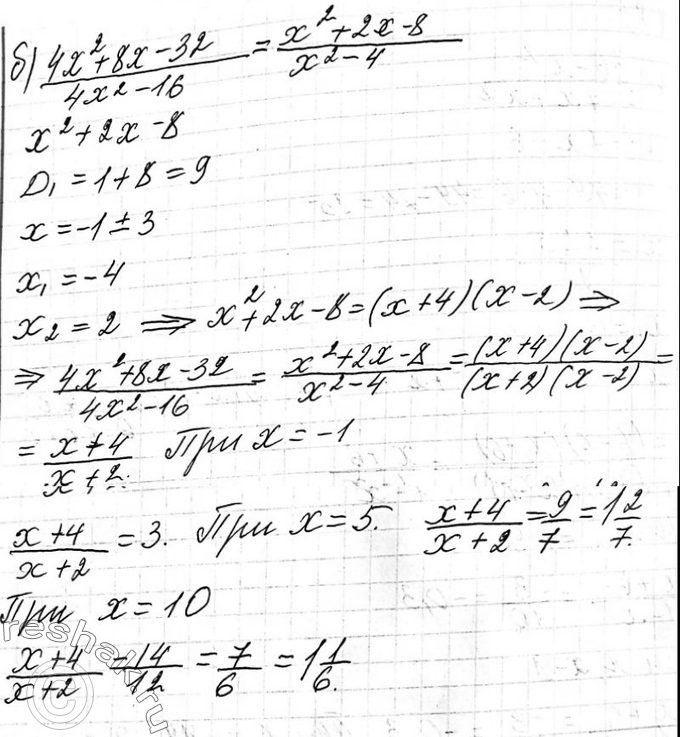 б) (4x²+8x-32)/(4x²-16) = (x²+2x-8)/(x²-4)
x²+2x-8
D₁ = 1+8 = 9
x = -1 ± 3
x₁ = -4
x₂ = 2 ⟹ x²+2x-8 = (x+4)(x-2) ⟹
⟹ (4x²+8x-32)/(4x²-16) = (x²+2x-8)/(x²-4) = ((x+4)(x-2))/((x+2)(x-2)) =
= (x+4)/(x+2) При x = -1
(x+4)/(x+2) = 3. При x = 5. (x+4)/(x+2) = 9/7 = 1 2/7.
При x = 10
(x+4)/(x+2) = 14/12 = 7/6 = 1 1/6.
reshak.ru